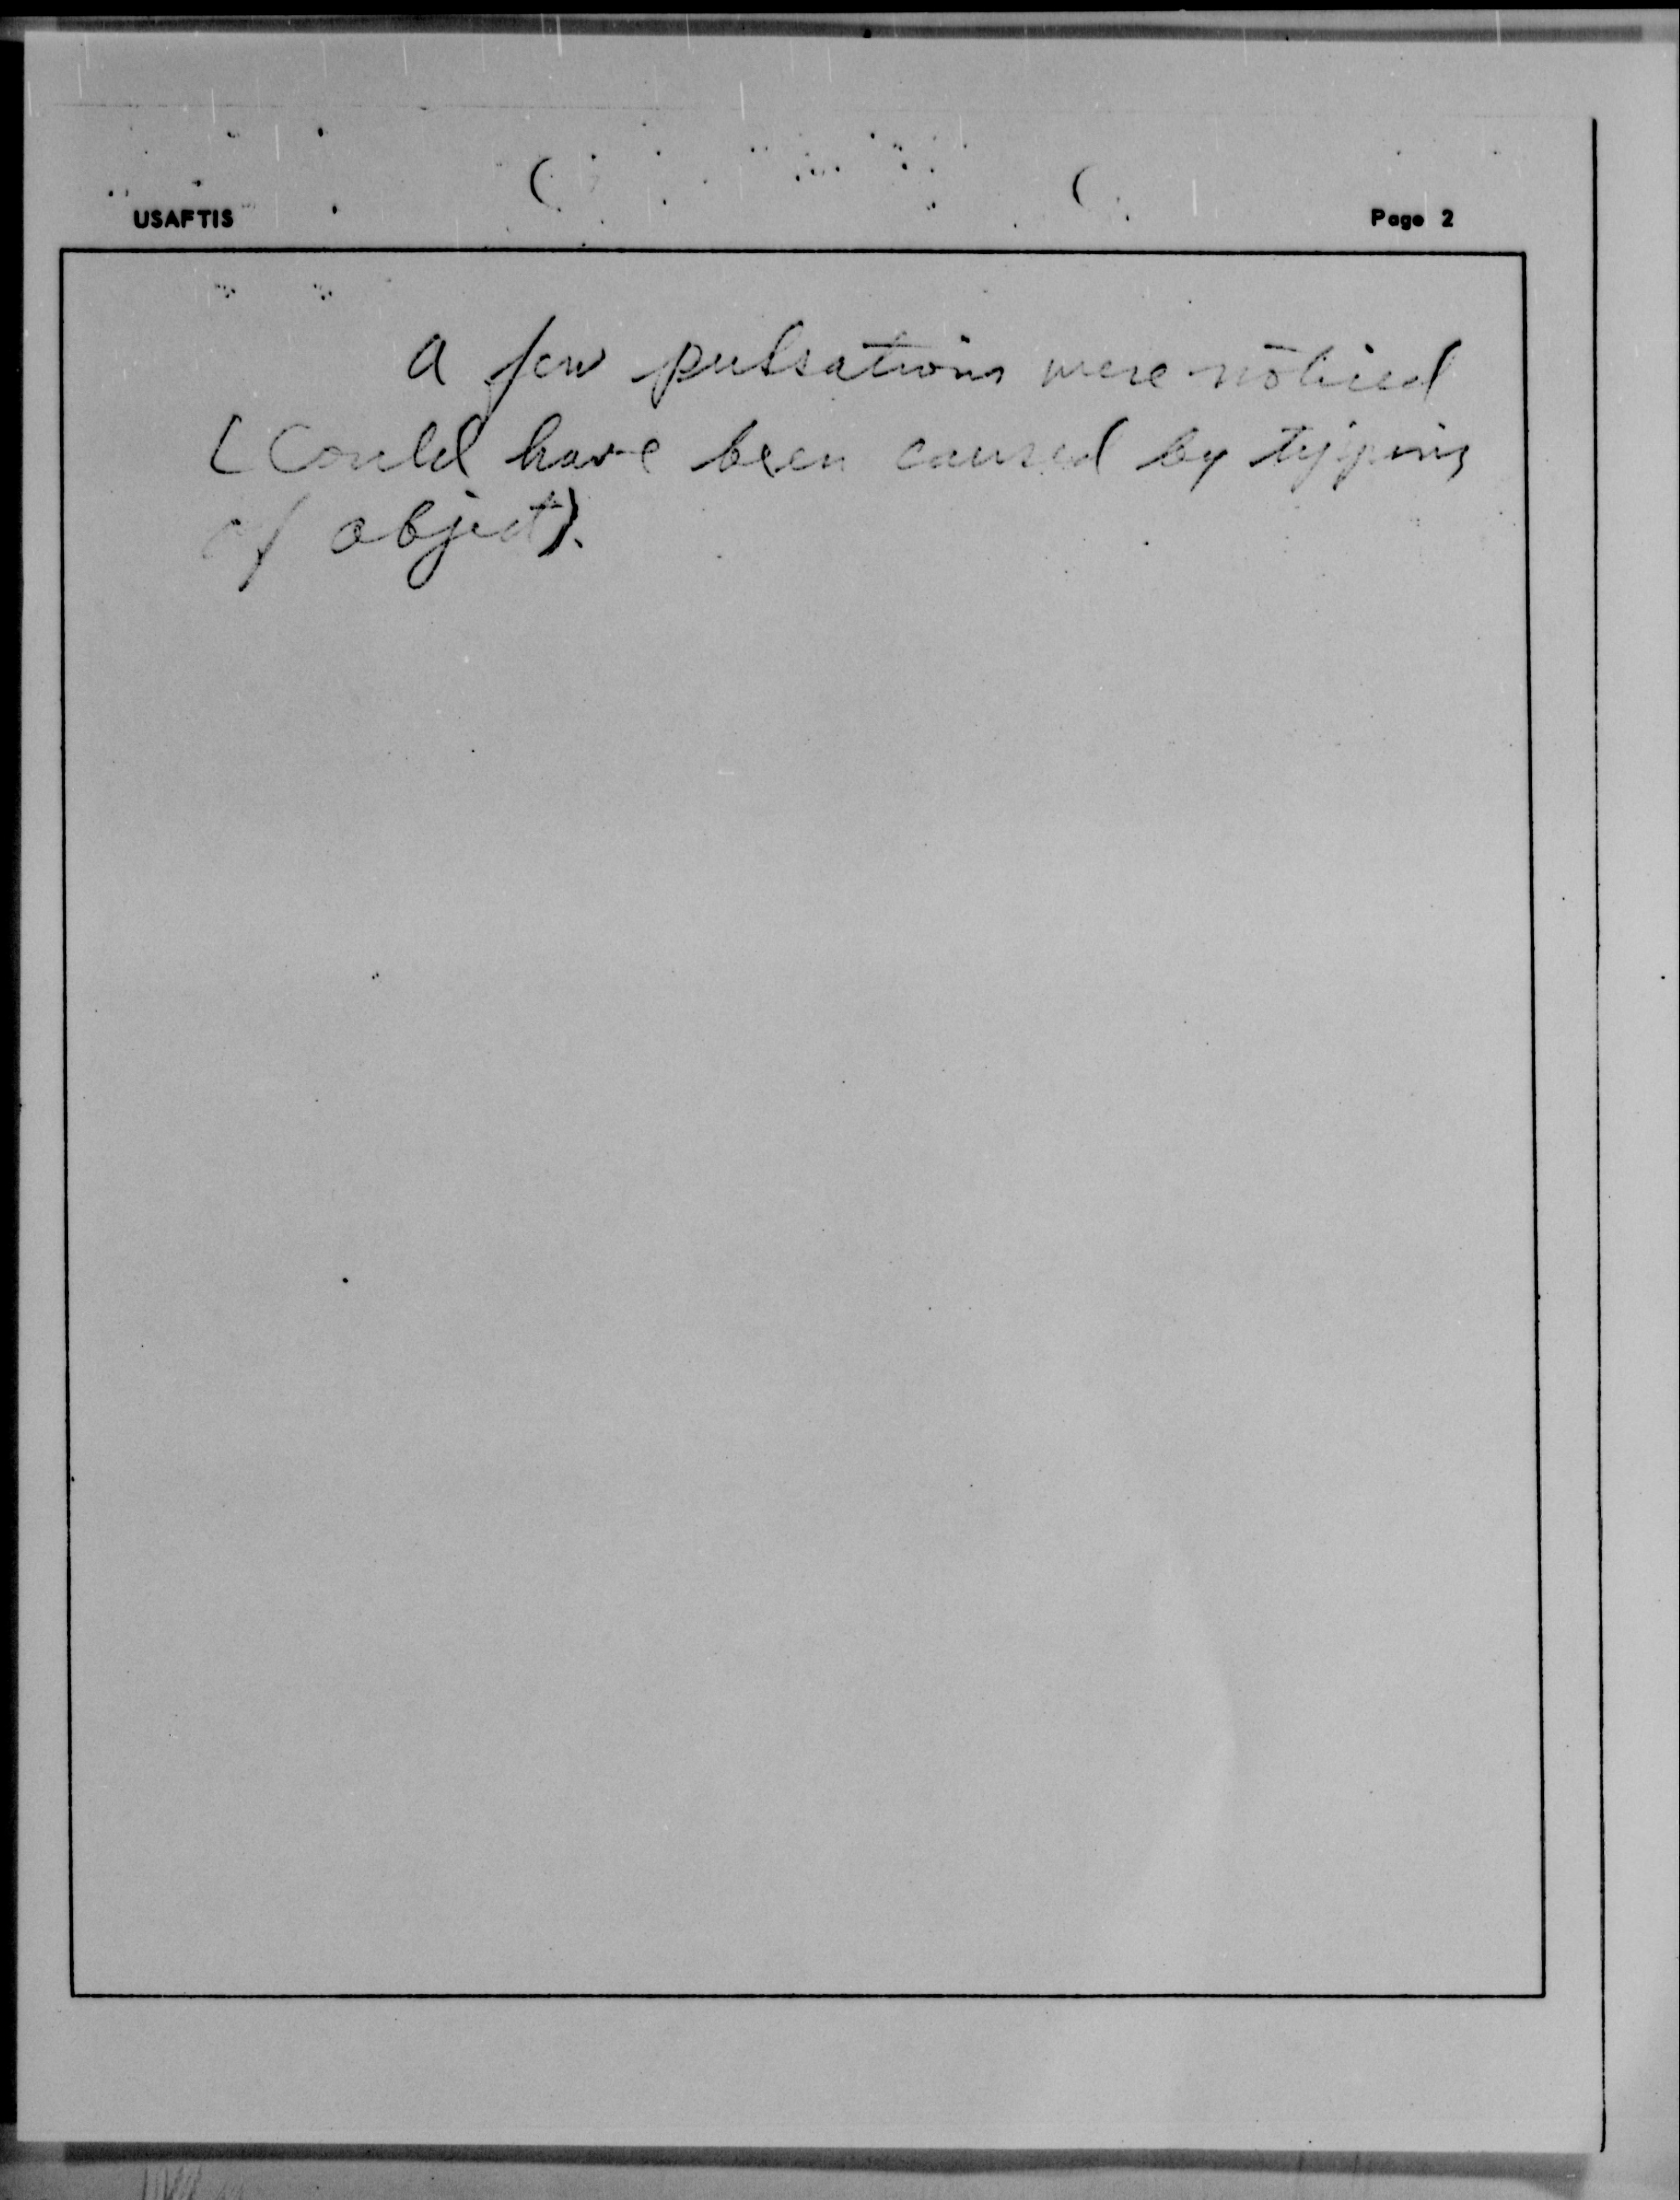 USAFTIS
Page 2
A few pulsations were noticed
(Could have been caused by tipping
of object).